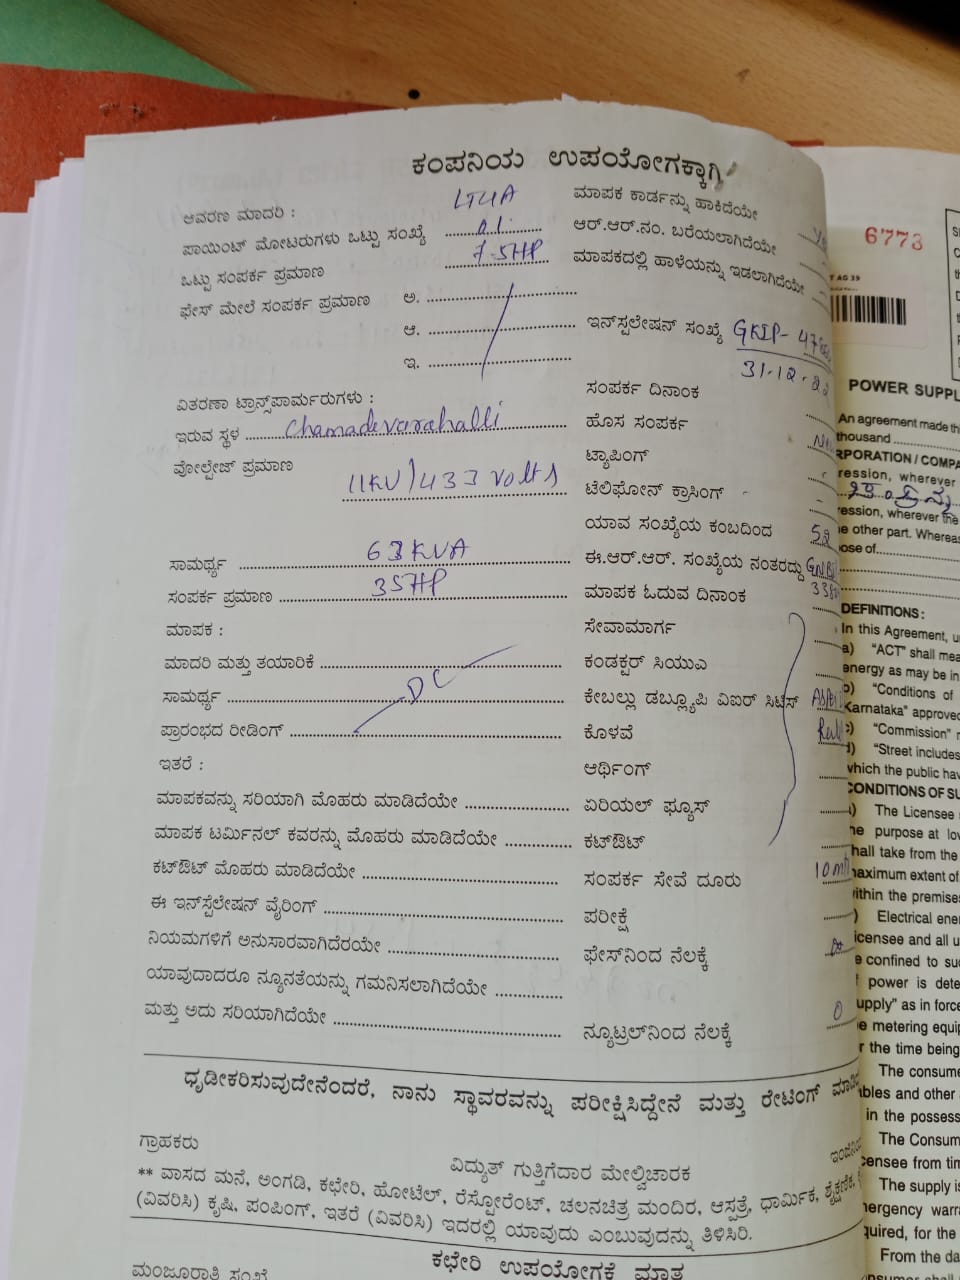 ಕಂಪನಿಯ ಉಪಯೋಗಕ್ಕಾಗಿ
ಆವರಣ ಮಾದರಿ : LT4A
ಪಾಯಿಂಟ್ ಮೋಟರುಗಳು ಒಟ್ಟು ಸಂಖ್ಯೆ 01.
ಒಟ್ಟು ಸಂಪರ್ಕ ಪ್ರಮಾಣ 7.5HP
ಫೇಸ್ ಮೇಲೆ ಸಂಪರ್ಕ ಪ್ರಮಾಣ ಅ.
ಆ.
ಇ.
ವಿತರಣಾ ಟ್ರಾನ್ಸ್‌ಪಾರ್ಮರುಗಳು :
ಇರುವ ಸ್ಥಳ Chamadevarahalli
ವೋಲ್ಟೇಜ್ ಪ್ರಮಾಣ
11KV/433 Volts
ಸಾಮರ್ಥ್ಯ 63KVA
ಸಂಪರ್ಕ ಪ್ರಮಾಣ 35HP
ಮಾಪಕ :
ಮಾದರಿ ಮತ್ತು ತಯಾರಿಕೆ
ಸಾಮರ್ಥ್ಯ DC
ಪ್ರಾರಂಭದ ರೀಡಿಂಗ್
ಇತರೆ :
ಮಾಪಕವನ್ನು ಸರಿಯಾಗಿ ಮೊಹರು ಮಾಡಿದೆಯೇ
ಮಾಪಕ ಟರ್ಮಿನಲ್ ಕವರನ್ನು ಮೊಹರು ಮಾಡಿದೆಯೇ
ಕಟ್‌ಔಟ್ ಮೊಹರು ಮಾಡಿದೆಯೇ
ಈ ಇನ್‌ಸ್ಟೆಲೇಷನ್ ವೈರಿಂಗ್
ನಿಯಮಗಳಿಗೆ ಅನುಸಾರವಾಗಿದೆರಯೇ
ಯಾವುದಾದರೂ ನ್ಯೂನತೆಯನ್ನು ಗಮನಿಸಲಾಗಿದೆಯೇ
ಮತ್ತು ಅದು ಸರಿಯಾಗಿದೆಯೇ
ಮಾಪಕ ಕಾರ್ಡನ್ನು ಹಾಕಿದೆಯೇ
ಆರ್.ಆರ್.ನಂ. ಬರೆಯಲಾಗಿದೆಯೇ
ಮಾಪಕದಲ್ಲಿ ಹಾಳೆಯನ್ನು ಇಡಲಾಗಿದೆಯೇ
ಇನ್‌ಸ್ಟಲೇಷನ್ ಸಂಖ್ಯೆ GKIP-
31-12-22
ಸಂಪರ್ಕ ದಿನಾಂಕ
ಹೊಸ ಸಂಪರ್ಕ
ಟ್ಯಾಪಿಂಗ್
ಟೆಲಿಫೋನ್ ಕ್ರಾಸಿಂಗ್ -
ಯಾವ ಸಂಖ್ಯೆಯ ಕಂಬದಿಂದ 52
ಈ.ಆರ್.ಆರ್. ಸಂಖ್ಯೆಯ ನಂತರದ್ದು
ಮಾಪಕ ಓದುವ ದಿನಾಂಕ
ಸೇವಾಮಾರ್ಗ
ಕಂಡಕ್ಟರ್ ಸಿಯುವಿ
ಕೇಬಲ್ಲು ಡಬ್ಲ್ಯೂಪಿ ವಿಐರ್ ಸಿಟಿಎಸ್
ಕೊಳವೆ
ಆರ್ಥಿಂಗ್
ಏರಿಯಲ್ ಫ್ಯೂಸ್
ಕಟ್‌ಔಟ್
ಸಂಪರ್ಕ ಸೇವೆ ದೂರು 10
ಪರೀಕ್ಷೆ
ಫೇಸ್‌ನಿಂದ ನೆಲಕ್ಕೆ
ನ್ಯೂಟ್ರಲ್‌ನಿಂದ ನೆಲಕ್ಕೆ 0
ಧೃಡೀಕರಿಸುವುದೇನೆಂದರೆ, ನಾನು ಸ್ಥಾವರವನ್ನು ಪರೀಕ್ಷಿಸಿದ್ದೇನೆ ಮತ್ತು ರೇಟಿಂಗ್
ಗ್ರಾಹಕರು
ವಿದ್ಯುತ್ ಗುತ್ತಿಗೆದಾರ ಮೇಲ್ವಿಚಾರಕ
** ವಾಸದ ಮನೆ, ಅಂಗಡಿ, ಕಛೇರಿ, ಹೋಟೆಲ್, ರೆಸ್ಟೋರೆಂಟ್, ಚಲನಚಿತ್ರ ಮಂದಿರ, ಆಸ್ಪತ್ರೆ, ಧಾರ್ಮಿಕ, ಶೈಕ್ಷಣಿಕ,
(ವಿವರಿಸಿ) ಕೃಷಿ, ಪಂಪಿಂಗ್, ಇತರೆ (ವಿವರಿಸಿ) ಇದರಲ್ಲಿ ಯಾವುದು ಎಂಬುವುದನ್ನು ತಿಳಿಸಿರಿ.
ಕಛೇರಿ ಉಪಯೋಗಕೆ ಮಾತ್ರ
ಮಂಜೂರಾತಿ ಸಂಖ್ಯೆ
6773
AG 39
POWER SUPPL
An agreement made the
thousand
RPORATION / COMPA
ression, wherever
ression, wherever the
e other part. Whereas
ose of
DEFINITIONS :
In this Agreement, u
a) "ACT" shall mea
energy as may be in
) "Conditions of
Karnataka" approved
) "Commission"
) "Street includes
which the public hav
CONDITIONS OF SU
The Licensee
he purpose at lov
hall take from the
maximum extent of
ithin the premises
) Electrical ener
icensee and all u
e confined to su
power is dete
upply" as in force
e metering equip
r the time being
The consume
bles and other
in the possess
The Consum
ensee from tim
The supply is
ergency warra
quired, for the
From the da